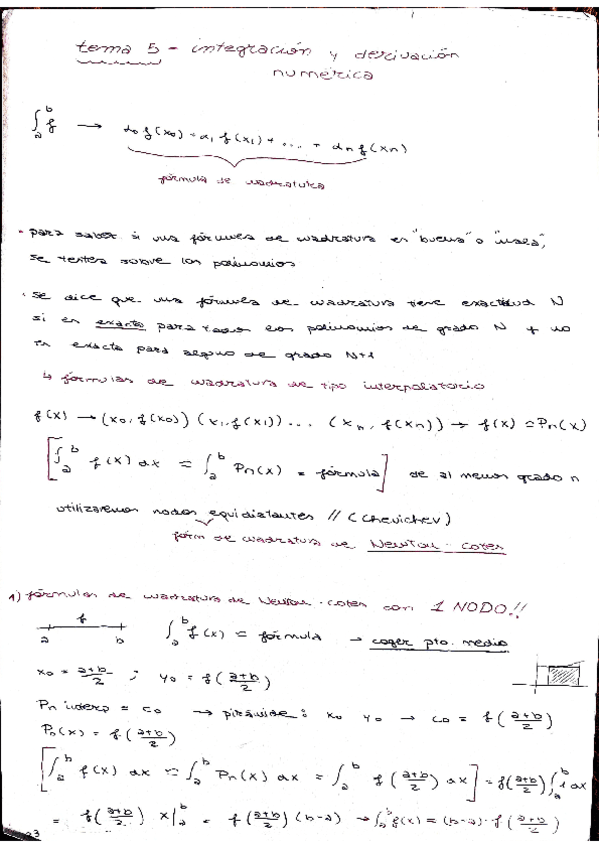 tema 5 - integración y derivación
numérica
∫_a^b f → α0 f(x0) + α1 f(x1) + ... + αn f(xn)
fórmula de cuadratura
· para saber si una fórmula de cuadratura es "buena" o "mala",
se testea sobre los polinomios
· se dice que una fórmula de cuadratura tiene exactitud N
si es exacta para todos los polinomios de grado N y no
es exacta para alguno de grado N+1
↳ fórmulas de cuadratura de tipo interpolatorio
f(x) → (x0, f(x0)) (x1, f(x1)) ... (xn, f(xn)) → f(x) ≃ Pn(x)
[∫_a^b f(x) dx ≃ ∫_a^b Pn(x) = fórmula] de al menos grado n
utilizaremos nodos equidistantes // (Chevichev)
form de cuadratura de Newton-Cotes
1) fórmulas de cuadratura de Newton-Cotes con 1 NODO!!
f
a b ∫_a^b f(x) ≃ fórmula → coger pto. medio
x0 = (a+b)/2 ; y0 = f((a+b)/2)
Pn interp = c0 → pirámide: x0 y0 → c0 = f((a+b)/2)
P0(x) = f((a+b)/2)
[∫_a^b f(x) dx ≃ ∫_a^b Pn(x) dx = ∫_a^b f((a+b)/2) dx] = f((a+b)/2) ∫_a^b 1 dx
= f((a+b)/2) x|_a^b = f((a+b)/2) (b-a) → ∫_a^b f(x) = (b-a) · f((a+b)/2)